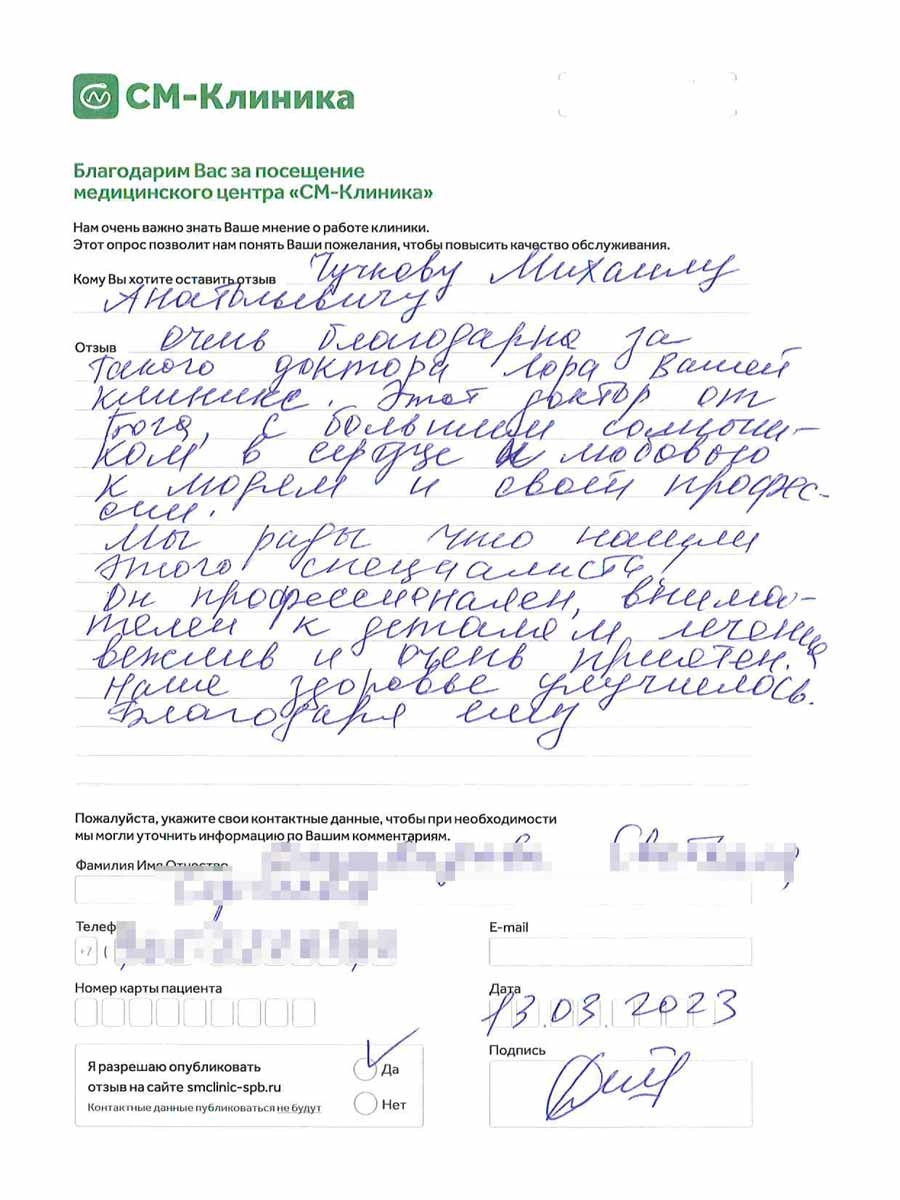 СМ-Клиника
Благодарим Вас за посещение
медицинского центра «СМ-Клиника»
Нам очень важно знать Ваше мнение о работе клиники.
Этот опрос позволит нам понять Ваши пожелания, чтобы повысить качество обслуживания.
Кому Вы хотите оставить отзыв Чучкову Михаилу
Анатольевичу
Отзыв очень благодарна за
такого доктора лора вашей
клинике. Этот доктор от
Бога, с большим солныш-
ком в сердце и любовью
к людям и своей профес-
сии.
Мы рады что нашли
этого специалиста,
Он профессионален, внима-
телен к деталям лечения
вежлив и очень приятен.
Наше здоровье улучшилось.
Благодаря ему
Пожалуйста, укажите свои контактные данные, чтобы при необходимости
мы могли уточнить информацию по Вашим комментариям.
Фамилия Имя Отчество
Телеф
E-mail
+7 (
Номер карты пациента
Дата
13.03.2023
Подпись
Я разрешаю опубликовать
отзыв на сайте smclinic-spb.ru
Контактные данные публиковаться не будут
Да
Нет